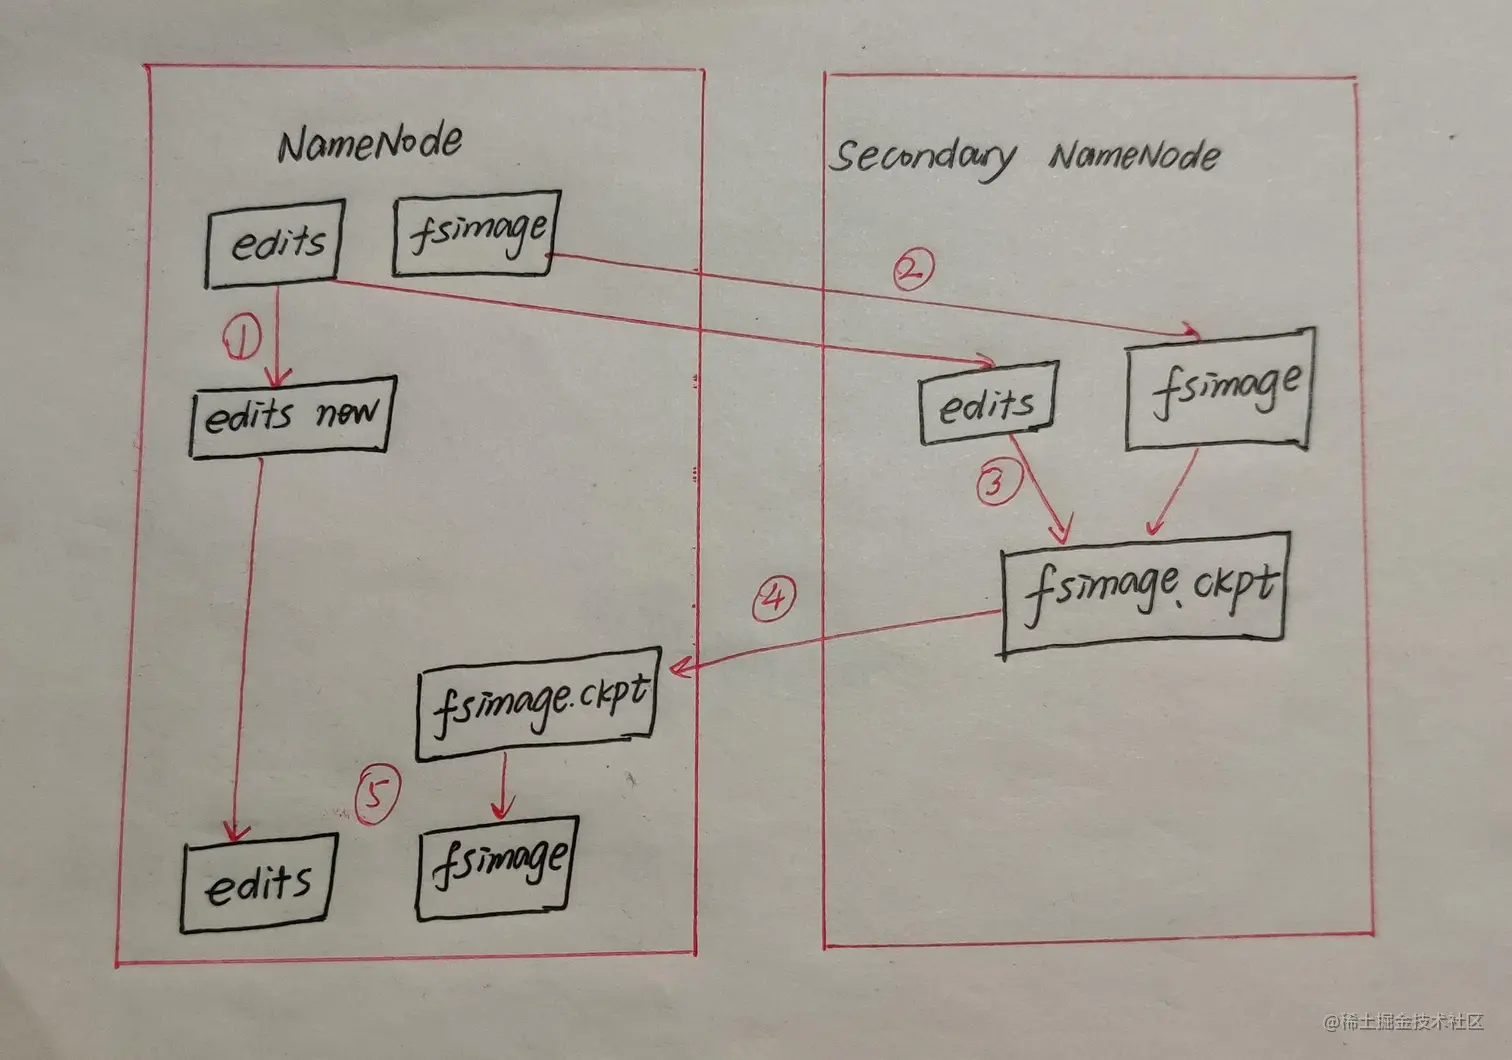 NameNode
Secondary NameNode
edits
fsimage
②
①
edits new
edits
fsimage
③
fsimage.ckpt
④
fsimage.ckpt
⑤
edits
fsimage
@稀土掘金技术社区